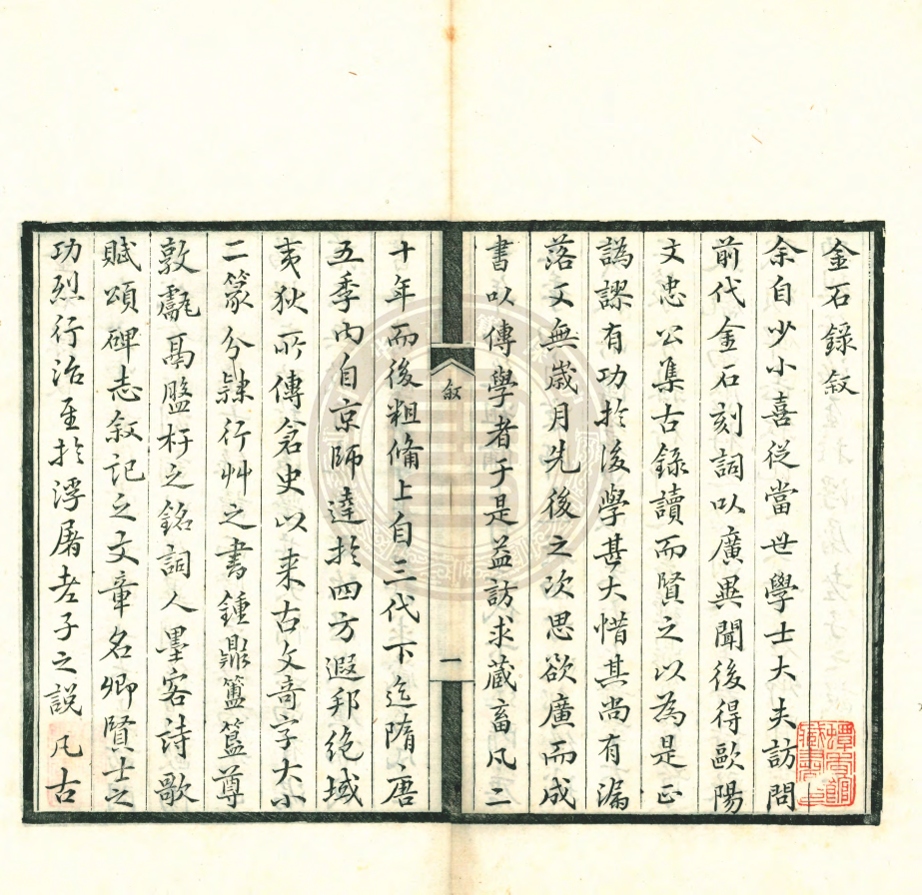 金石錄叙
余自少小喜從當世學士大夫訪問
前代金石刻詞以廣異聞後得歐陽
文忠公集古錄讀而賢之以為是正
譌謬有功於後學甚大惜其尚有漏
落又無歲月先後之次思欲廣而成
書以傳學者于是益訪求蔵畜凡二
叙
一
十年而後粗備上自三代下迄隋唐
五季内自京師達於四方遐邦绝域
夷狄所傳倉史以来古文奇字大小
二篆分隷行艸之書鍾鼎簠簋尊
敦甗鬲盤杅之銘詞人墨客詩歌
賦頌碑志叙記之文章名卿賢士之
功烈行治至於浮屠老子之說凡古